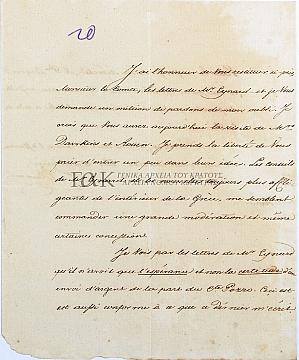 20
J'ai l'honneur de Vous restituer ci près
Monsieur le Comte, les lettres de Mr Eynard et je Vous
demande un million de pardons de mon oubli. Je
crois que Vous aurez aujourd'hui la visite de Mrs
Dawkins et Rouen. Je prends la liberté de Vous
prier d'entrer un peu dans leurs idées. Les conseils
de et les nouvelles toujours plus affli-
geantes de l'intérieur de la Grèce, me semblent
commander une grande modération et même
certaines concessions.
ΓΕΝΙΚΑ ΑΡΧΕΙΑ ΤΟΥ ΚΡΑΤΟΥΣ
Je Vois par les lettres de Mr Eynard
qu'il n'avoit que l'espérance et non la certitude d'un
envoi d'argent de la part du Cte Pozzo. Ceci est
est aussi conforme à ce que ce dernier m'écrit